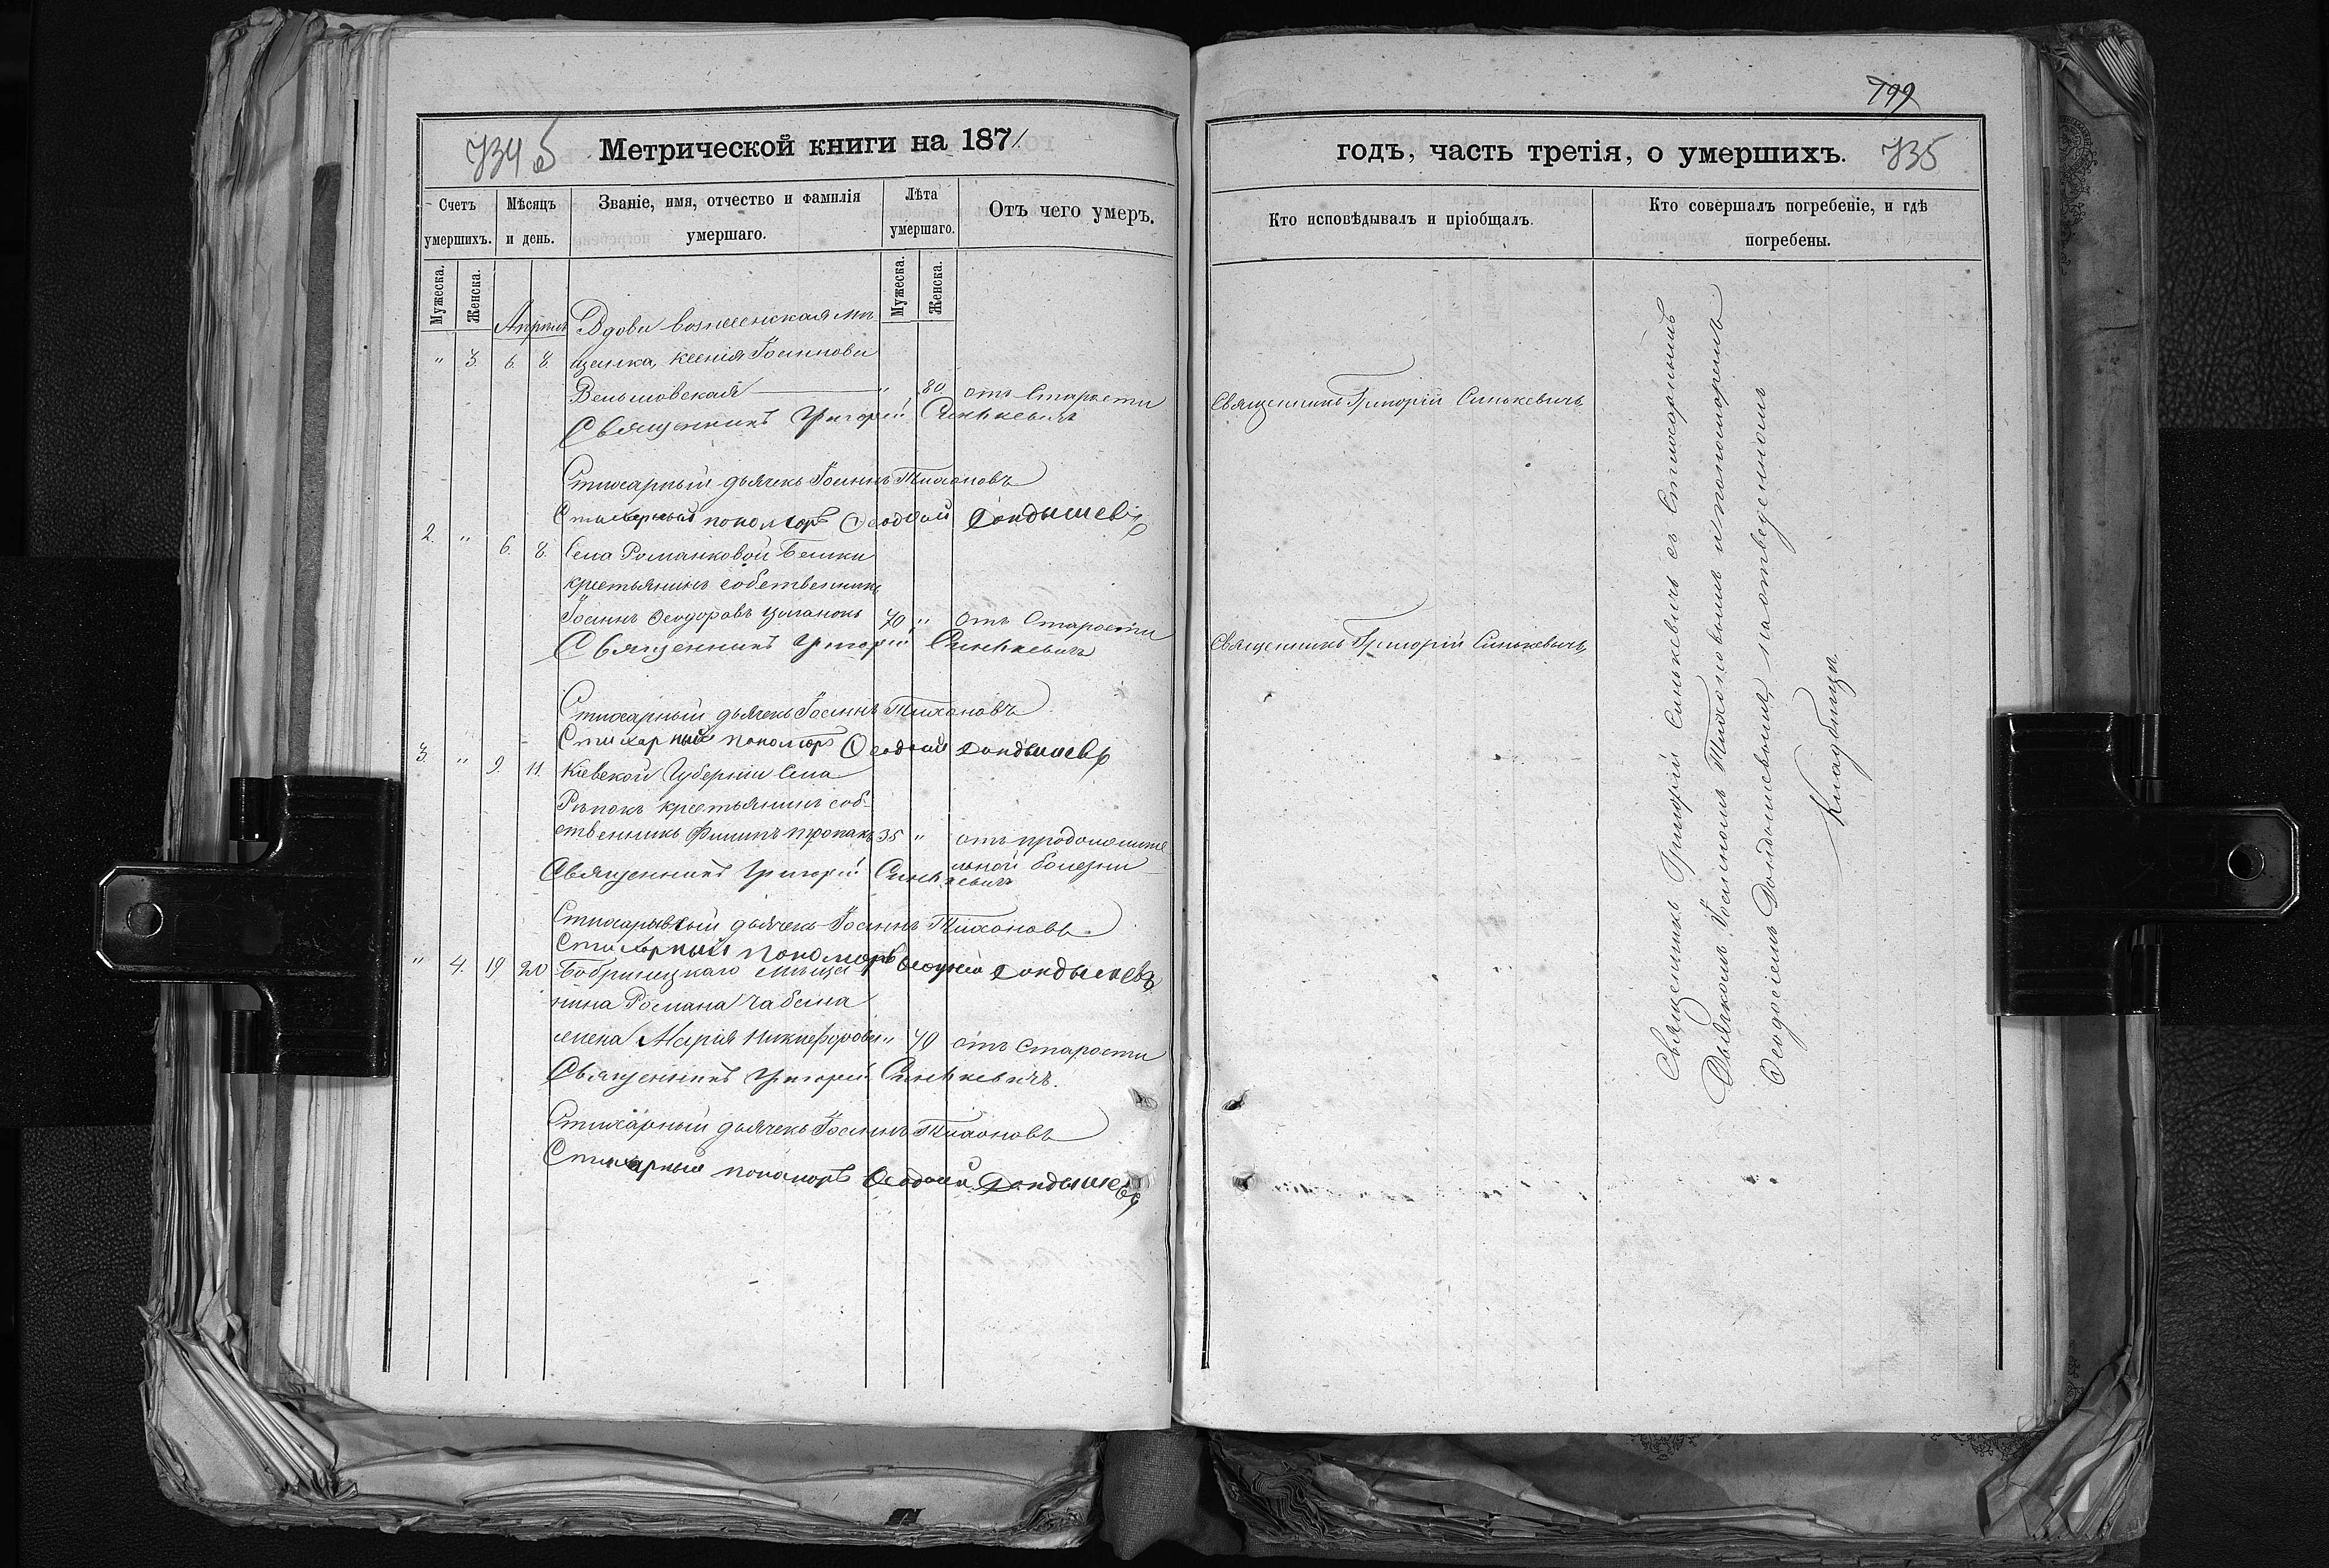 734 б Метрической книги на 1871
Счетъ умершихъ.
Мѣсяцъ и день.
Званіе, имя, отчество и фамилія умершаго.
Лѣта умершаго.
Отъ чего умеръ.
Мужеска. Женска. Мужеска. Женска.
Апрѣль Вдова вознесенская мѣ
" 3. 6. 8. щанка, Ксенія Іоаннова
" 80 отъ старости
Священникъ Григорій Синькевичъ
Стихарный дьячекъ Іоаннъ Тихоновъ
Стихарный пономорь Ѳеодосій Дондышевъ
2. " 6. 8. Села Романковой Балки
крестьянинъ собственникъ
Іоаннъ Ѳеодоровъ Цыганокъ 70 " отъ старости
Священникъ Григорій Синькевичъ
Стихарный дьячекъ Іоаннъ Тихоновъ
Стихарный пономорь Ѳеодосій Дондышевъ
3. " 9. 11. Кіевской Губерніи села
крестьянинъ соб-
ственникъ Филипъ 35 " отъ продолжите
льной болезни
Священникъ Григорій Синькевичъ
Стихарный дьячекъ Іоаннъ Тихоновъ
Стихарный пономорь Ѳеодосій Дондышевъ
" 4. 19 20 Бобринецкаго мѣща-
нина Романа
жена Марія Никифорова " 70 отъ старости
Священникъ Григорій Синькевичъ.
Стихарный дьячекъ Іоаннъ Тихоновъ
Стихарный пономорь Ѳеодосій Дондышевъ
799
годъ, часть третія, о умершихъ. 735
Кто исповѣдывалъ и пріобщалъ.
Кто совершалъ погребеніе, и гдѣ погребены.
Священникъ Григорій Синькевичъ
Священникъ Григорій Синькевичъ
Священникъ Григорій Синькевичъ съ Стихарнымъ
Дьячкомъ Іоанномъ Тихоновымъ и пономоремъ
Ѳеодосіемъ Дондышевымъ, на отведенномъ
Кладбищѣ